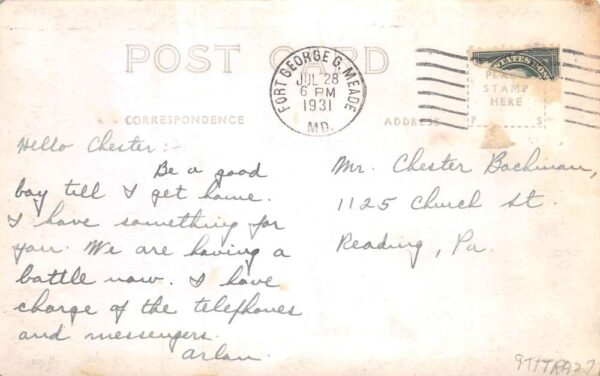 POST CARD
FORT GEORGE G. MEADE
JUL 28
6 PM
1931
MD.
STATES POS
PLACE
STAMP
HERE
P. S.
CORRESPONDENCE
ADDRESS
Hello Chester:-
Be a good
boy till I get home.
I have something for
you. We are having a
battle now. I have
charge of the telephones
and messengers.
Arlan.
Mr. Chester Bachman,
1125 Church St.
Reading, Pa.